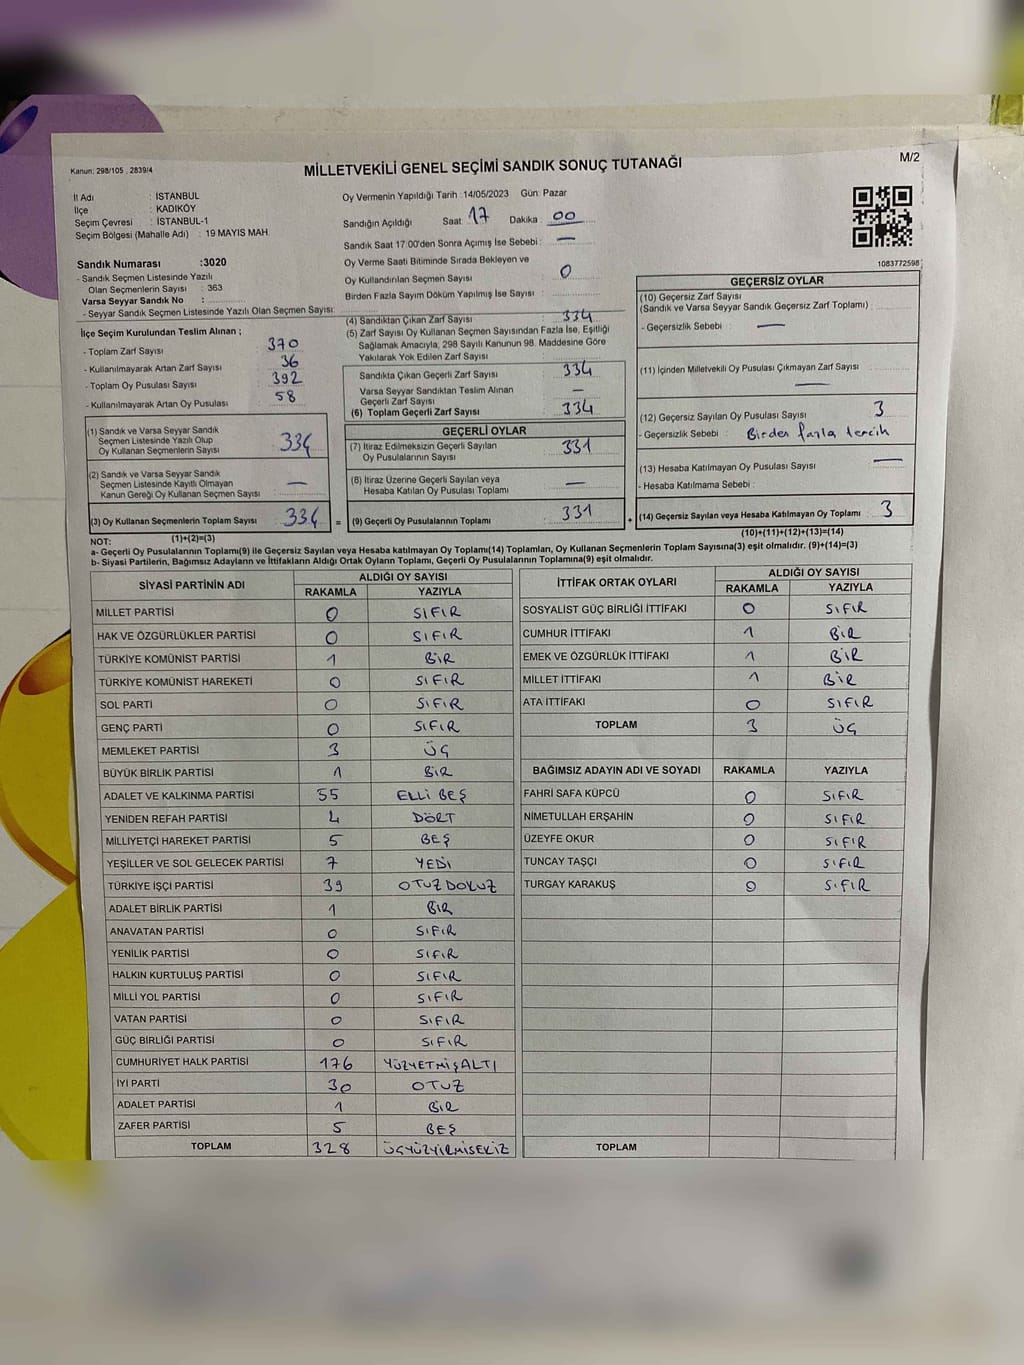 Kanun: 298/105 , 2839/4
MİLLETVEKİLİ GENEL SEÇİMİ SANDIK SONUÇ TUTANAĞI
M/2
İl Adı : İSTANBUL
İlçe : KADIKÖY
Seçim Çevresi : İSTANBUL-1
Seçim Bölgesi (Mahalle Adı) : 19 MAYIS MAH.
Oy Vermenin Yapıldığı Tarih :14/05/2023 Gün: Pazar
Sandığın Açıldığı Saat: 17 Dakika : 00
Sandık Saat 17:00'den Sonra Açımış İse Sebebi : —
Oy Verme Saati Bitiminde Sırada Bekleyen ve
Oy Kullandırılan Seçmen Sayısı : 0
Birden Fazla Sayım Döküm Yapılmış İse Sayısı :
1083772598
Sandık Numarası :3020
- Sandık Seçmen Listesinde Yazılı
Olan Seçmenlerin Sayısı : 363
Varsa Seyyar Sandık No :
- Seyyar Sandık Seçmen Listesinde Yazılı Olan Seçmen Sayısı:
İlçe Seçim Kurulundan Teslim Alınan ;
- Toplam Zarf Sayısı : 370
- Kullanılmayarak Artan Zarf Sayısı : 36
- Toplam Oy Pusulası Sayısı : 392
- Kullanılmayarak Artan Oy Pusulası : 58
(1) Sandık ve Varsa Seyyar Sandık
Seçmen Listesinde Yazılı Olup
Oy Kullanan Seçmenlerin Sayısı : 334
(2) Sandık ve Varsa Seyyar Sandık
Seçmen Listesinde Kayıtlı Olmayan
Kanun Gereği Oy Kullanan Seçmen Sayısı : —
(3) Oy Kullanan Seçmenlerin Toplam Sayısı : 334
(1)+(2)=(3)
(4) Sandıktan Çıkan Zarf Sayısı : 334
(5) Zarf Sayısı Oy Kullanan Seçmen Sayısından Fazla İse, Eşitliği
Sağlamak Amacıyla, 298 Sayılı Kanunun 98. Maddesine Göre
Yakılarak Yok Edilen Zarf Sayısı :
Sandıkta Çıkan Geçerli Zarf Sayısı : 334
Varsa Seyyar Sandıktan Teslim Alınan
Geçerli Zarf Sayısı : —
(6) Toplam Geçerli Zarf Sayısı : 334
GEÇERLİ OYLAR
(7) İtiraz Edilmeksizin Geçerli Sayılan
Oy Pusulalarının Sayısı : 331
(8) İtiraz Üzerine Geçerli Sayılan veya
Hesaba Katılan Oy Pusulası Toplamı : —
= (9) Geçerli Oy Pusulalarının Toplamı : 331
GEÇERSİZ OYLAR
(10) Geçersiz Zarf Sayısı
(Sandık ve Varsa Seyyar Sandık Geçersiz Zarf Toplamı) :
- Geçersizlik Sebebi : —
(11) İçinden Milletvekili Oy Pusulası Çıkmayan Zarf Sayısı :
—
(12) Geçersiz Sayılan Oy Pusulası Sayısı : 3
- Geçersizlik Sebebi : Birden fazla tercih
(13) Hesaba Katılmayan Oy Pusulası Sayısı : —
- Hesaba Katılmama Sebebi :
+ (14) Geçersiz Sayılan veya Hesaba Katılmayan Oy Toplamı : 3
(10)+(11)+(12)+(13)=(14)
NOT:
a- Geçerli Oy Pusulalarının Toplamı(9) ile Geçersiz Sayılan veya Hesaba katılmayan Oy Toplamı(14) Toplamları, Oy Kullanan Seçmenlerin Toplam Sayısına(3) eşit olmalıdır. (9)+(14)=(3)
b- Siyasi Partilerin, Bağımsız Adayların ve İttifakların Aldığı Ortak Oyların Toplamı, Geçerli Oy Pusulalarının Toplamına(9) eşit olmalıdır.
SİYASİ PARTİNİN ADI ALDIĞI OY SAYISI
RAKAMLA YAZIYLA
MİLLET PARTİSİ 0 SIFIR
HAK VE ÖZGÜRLÜKLER PARTİSİ 0 SIFIR
TÜRKİYE KOMÜNİST PARTİSİ 1 BİR
TÜRKİYE KOMÜNİST HAREKETİ 0 SIFIR
SOL PARTİ 0 SIFIR
GENÇ PARTİ 0 SIFIR
MEMLEKET PARTİSİ 3 ÜÇ
BÜYÜK BİRLİK PARTİSİ 1 BİR
ADALET VE KALKINMA PARTİSİ 55 ELLİ BEŞ
YENİDEN REFAH PARTİSİ 4 DÖRT
MİLLİYETÇİ HAREKET PARTİSİ 5 BEŞ
YEŞİLLER VE SOL GELECEK PARTİSİ 7 YEDİ
TÜRKİYE İŞÇİ PARTİSİ 39 OTUZDOKUZ
ADALET BİRLİK PARTİSİ 1 BİR
ANAVATAN PARTİSİ 0 SIFIR
YENİLİK PARTİSİ 0 SIFIR
HALKIN KURTULUŞ PARTİSİ 0 SIFIR
MİLLİ YOL PARTİSİ 0 SIFIR
VATAN PARTİSİ 0 SIFIR
GÜÇ BİRLİĞİ PARTİSİ 0 SIFIR
CUMHURİYET HALK PARTİSİ 176 YÜZYETMİŞALTI
İYİ PARTİ 30 OTUZ
ADALET PARTİSİ 1 BİR
ZAFER PARTİSİ 5 BEŞ
TOPLAM 328 ÜÇYÜZYİRMİSEKİZ
İTTİFAK ORTAK OYLARI ALDIĞI OY SAYISI
RAKAMLA YAZIYLA
SOSYALİST GÜÇ BİRLİĞİ İTTİFAKI 0 SIFIR
CUMHUR İTTİFAKI 1 BİR
EMEK VE ÖZGÜRLÜK İTTİFAKI 1 BİR
MİLLET İTTİFAKI 1 BİR
ATA İTTİFAKI 0 SIFIR
TOPLAM 3 ÜÇ
BAĞIMSIZ ADAYIN ADI VE SOYADI RAKAMLA YAZIYLA
FAHRİ SAFA KÜPCÜ 0 SIFIR
NİMETULLAH ERŞAHİN 0 SIFIR
ÜZEYFE OKUR 0 SIFIR
TUNCAY TAŞÇI 0 SIFIR
TURGAY KARAKUŞ 0 SIFIR
TOPLAM